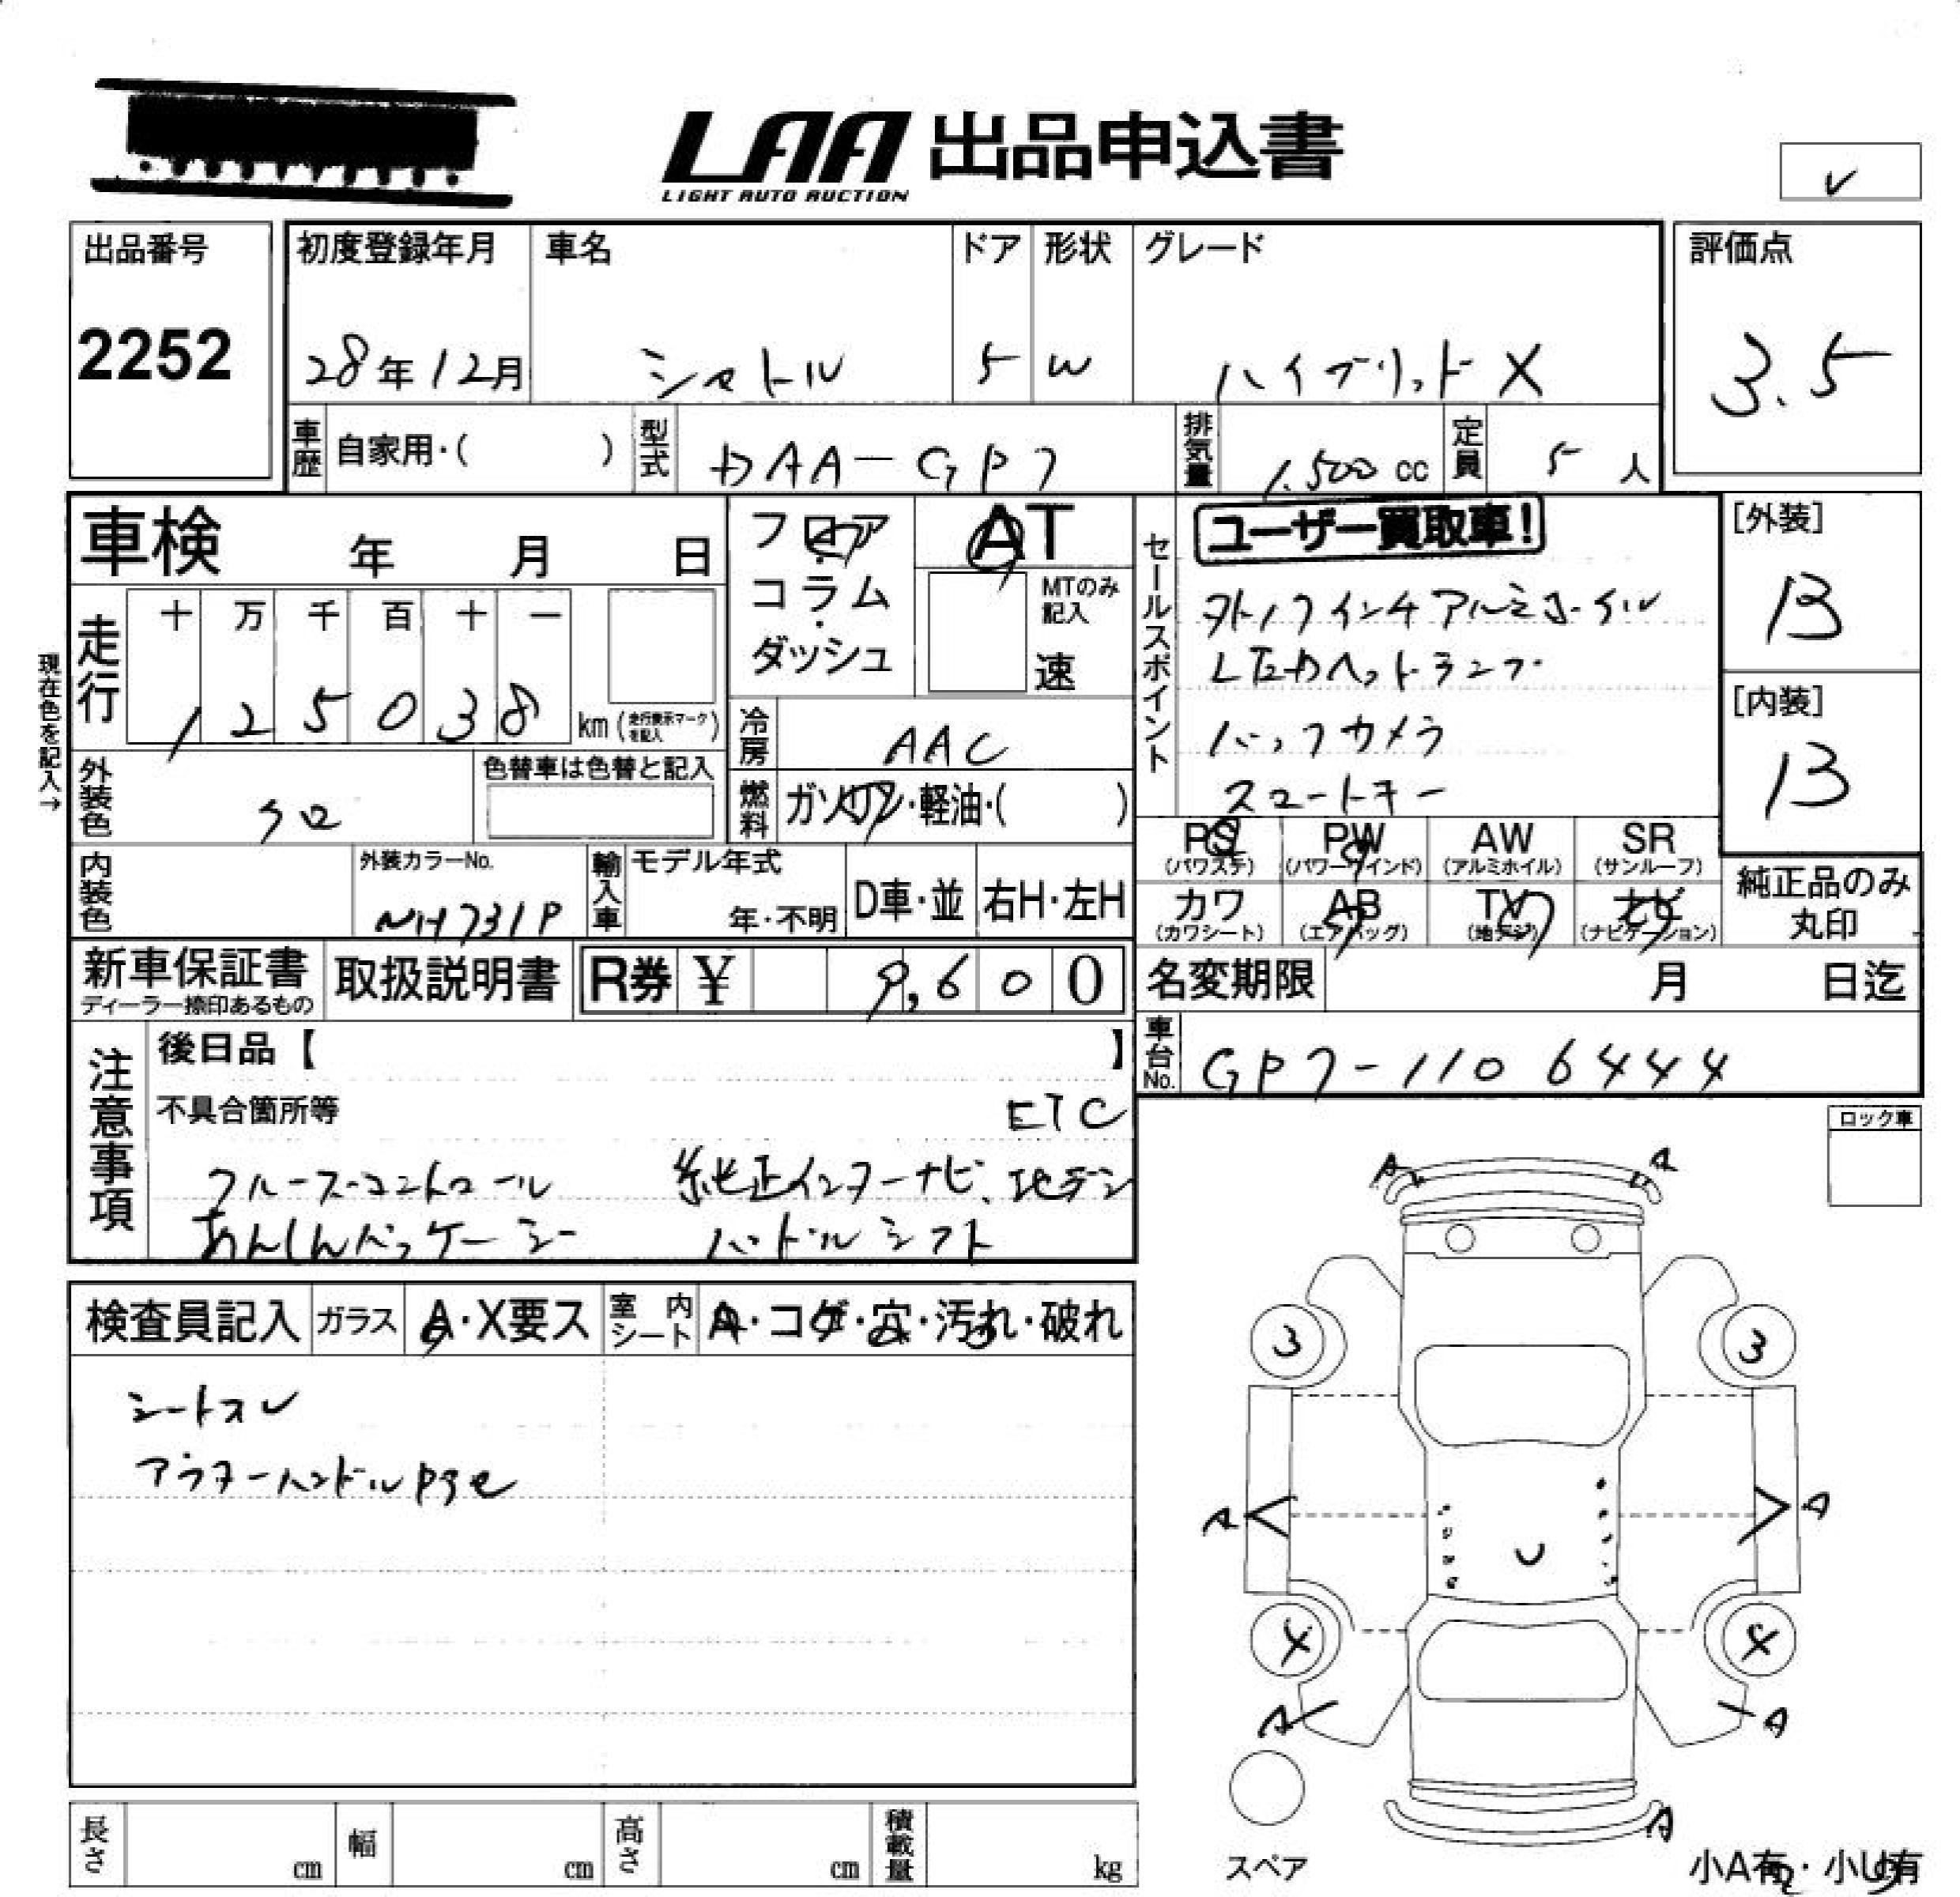 LAA 出品申込書
LIGHT AUTO AUCTION
出品番号 2252
初度登録年月 28年12月
車名 シャトル
ドア 5
形状 W
グレード ハイブリットX
評価点 3.5
車歴 自家用・( )
型式 DAA-GP7
排気量 1.500cc
定員 5人
車検 年 月 日
フロア・コラム・ダッシュ
AT
MTのみ記入
速
セールスポイント
ユーザー買取車!
インチアルミホイル
LEDヘットランプ
バックカメラ
スマートキー
[外装] B
[内装] B
現在色を記入→
走行 十 万 千 百 十 一
1 2 5 0 3 8 km (走行表示マークを記入)
冷房 AAC
外装色 クロ
色替車は色替と記入
燃料 ガソリン・軽油・( )
PS (パワステ)
PW (パワーウインド)
AW (アルミホイル)
SR (サンルーフ)
カワ (カワシート)
AB (エアバッグ)
TV (地デジ)
ナビ (ナビゲーション)
純正品のみ丸印
内装色
外装カラーNo. NH731P
輸入車 モデル年式 年・不明
D車・並
右H・左H
新車保証書
ディーラー捺印あるもの
取扱説明書
R券 ¥ 9,600
名変期限 月 日迄
車台No. GP7-1106444
注意事項
後日品【 】
不具合箇所等 ETC
クルーズコントロール 純正インターナビ、地デジ
あんしんパッケージ パドルシフト
ロック車
検査員記入
ガラス A・X要ス
室内シート A・コゲ・穴・汚れ・破れ
シートスレ
アウターハンドル
A A
3 3
A A
4 4
A A
A
スペア
小A有・小U有
長さ cm
幅 cm
高さ cm
積載量 kg